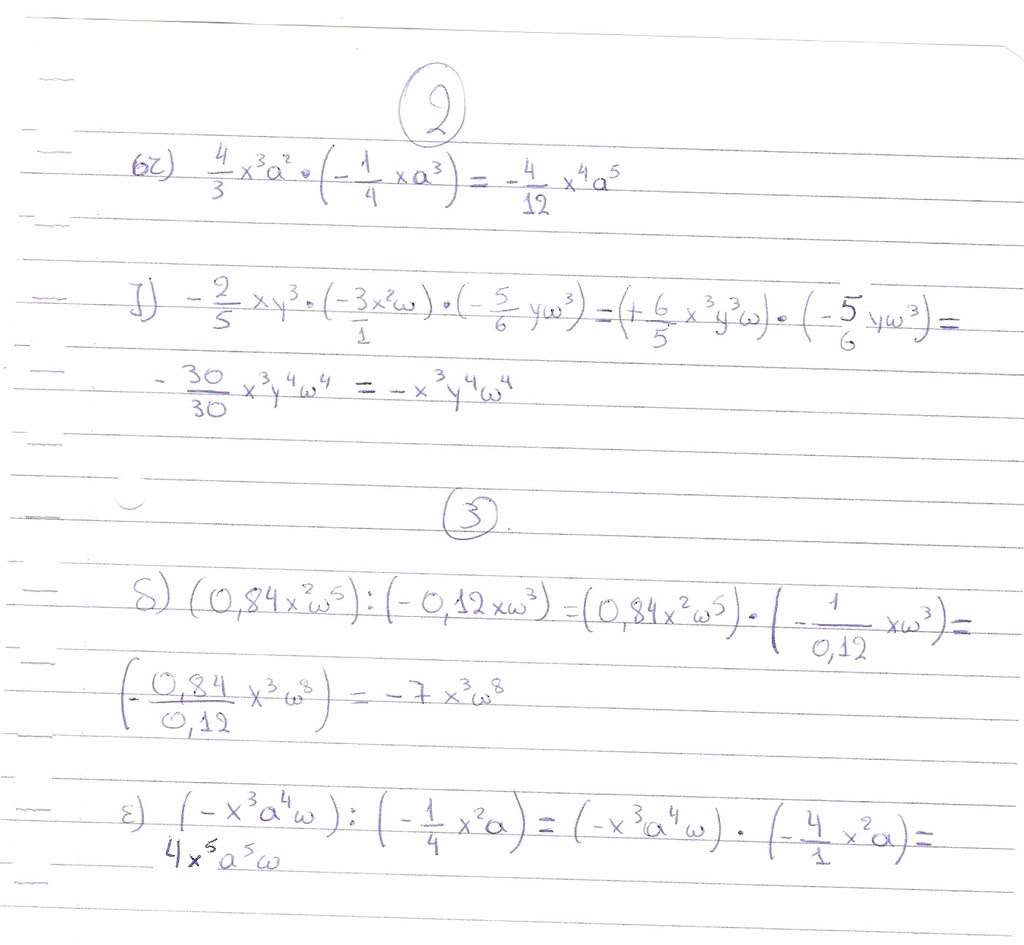 2
στ) 4/3 x³a² · (-1/4 xa³) = -4/12 x⁴a⁵
ζ) -2/5 xy³ · (-3x²ω/1) · (-5/6 yω³) = (+6/5 x³y³ω) · (-5/6 yω³) =
-30/30 x³y⁴ω⁴ = -x³y⁴ω⁴
3.
δ) (0,84x²ω⁵) : (-0,12xω³) = (0,84x²ω⁵) · (-1/0,12 xω³) =
(-0,84/0,12 x³ω⁸) = -7x³ω⁸
ε) (-x³a⁴ω) : (-1/4 x²a) = (-x³a⁴ω) · (-4/1 x²a) =
4x⁵a⁵ω